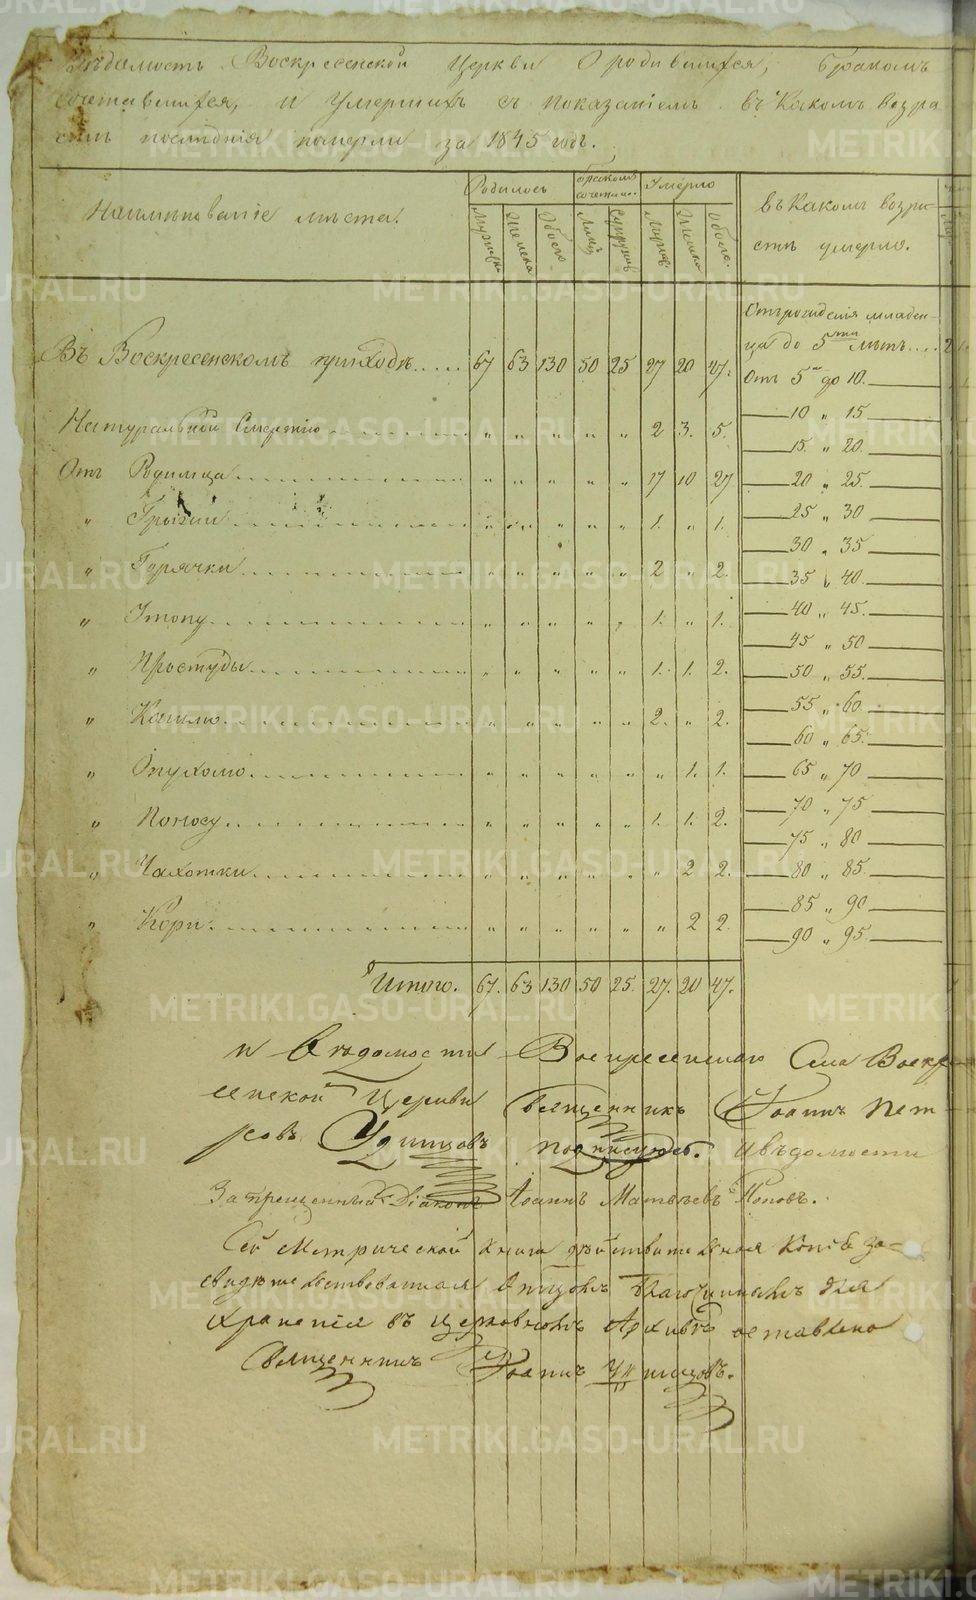 Ведомость Воскресенской Церкви О родившихся, бракомъ
сочетавшихся, и Умершихъ съ показаніемъ въ Какомъ возра
стѣ последнія померли за 1845 годъ.
Наименованіе мѣста.
Родилось
бракомъ сочетано.
Умерло
въ Какомъ возра-
стѣ умерло.
Мужеска
Женска
Обоего
Лицъ
Супруговъ
Мужеск.
Женска
Обоего.
Отъ рожденія младен-
ца до 5ти лѣтъ....2
Въ Воскресенскомъ приходѣ..... 67 63 130 50 25 27 20 47.
Отъ 5 до 10.
10 „ 15
Натуральной Смертію „ „ „ „ „ 2 3. 5.
15. „ 20.
Отъ Родимца „ „ „ „ „ 17 10 27
20 „ 25.
„ Грыжи „ „ „ „ „ 1. „ 1.
25 „ 30
30 „ 35
„ Горячки „ „ „ „ „ 2 „ 2.
35 „ 40.
„ Утопу „ „ „ „ „ 1. „ 1.
40 „ 45.
45 „ 50
„ Простуды „ „ „ „ „ 1. 1. 2.
50 „ 55.
„ Кашлю „ „ „ „ „ 2. „ 2.
55 „ 60.
60 „ 65.
„ Опухолю „ „ „ „ „ „ 1. 1.
65 „ 70
„ Поносу „ „ „ „ „ 1. 1. 2.
70 „ 75
75 „ 80
„ Чахотки „ „ „ „ „ „ 2 2.
80 „ 85.
„ Кори „ „ „ „ „ „ 2 2.
85 „ 90
90 „ 95.
Итого. 67. 63 130 50 25. 27. 20 47.
К Вѣдомости Воскресенскаго Села Воскре
сенской Церкви Священникъ Іоаннъ Пет
ровъ Удинцовъ подписуюсь. Ивѣдомости
Запрещенный Діаконъ Іоаннъ Матвѣевъ Поповъ.
Сей Метрической книги действительная копія за-
свидетельствованная Отцомъ Благочиннымъ для
храненія въ церковномъ Архивѣ оставлена
Священникъ Іоаннъ Удинцовъ.
METRIKI.GASO-URAL.RU